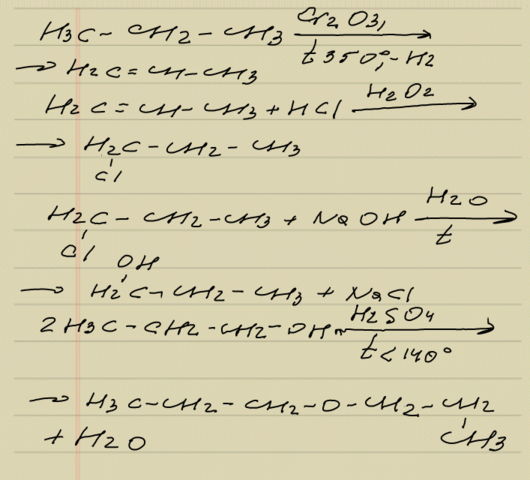 H3C - CH2 - CH3 Cr2O3, t 350°, -H2 →
→ H2C = CH - CH3
H2C = CH - CH3 + HCl H2O2 →
→ H2C - CH2 - CH3
Cl
H2C - CH2 - CH3 + NaOH H2O t →
Cl OH
→ H2C - CH2 - CH3 + NaCl
2 H3C - CH2 - CH2 - OH H2SO4 t < 140° →
→ H3C - CH2 - CH2 - O - CH2 - CH2
+ H2O CH3